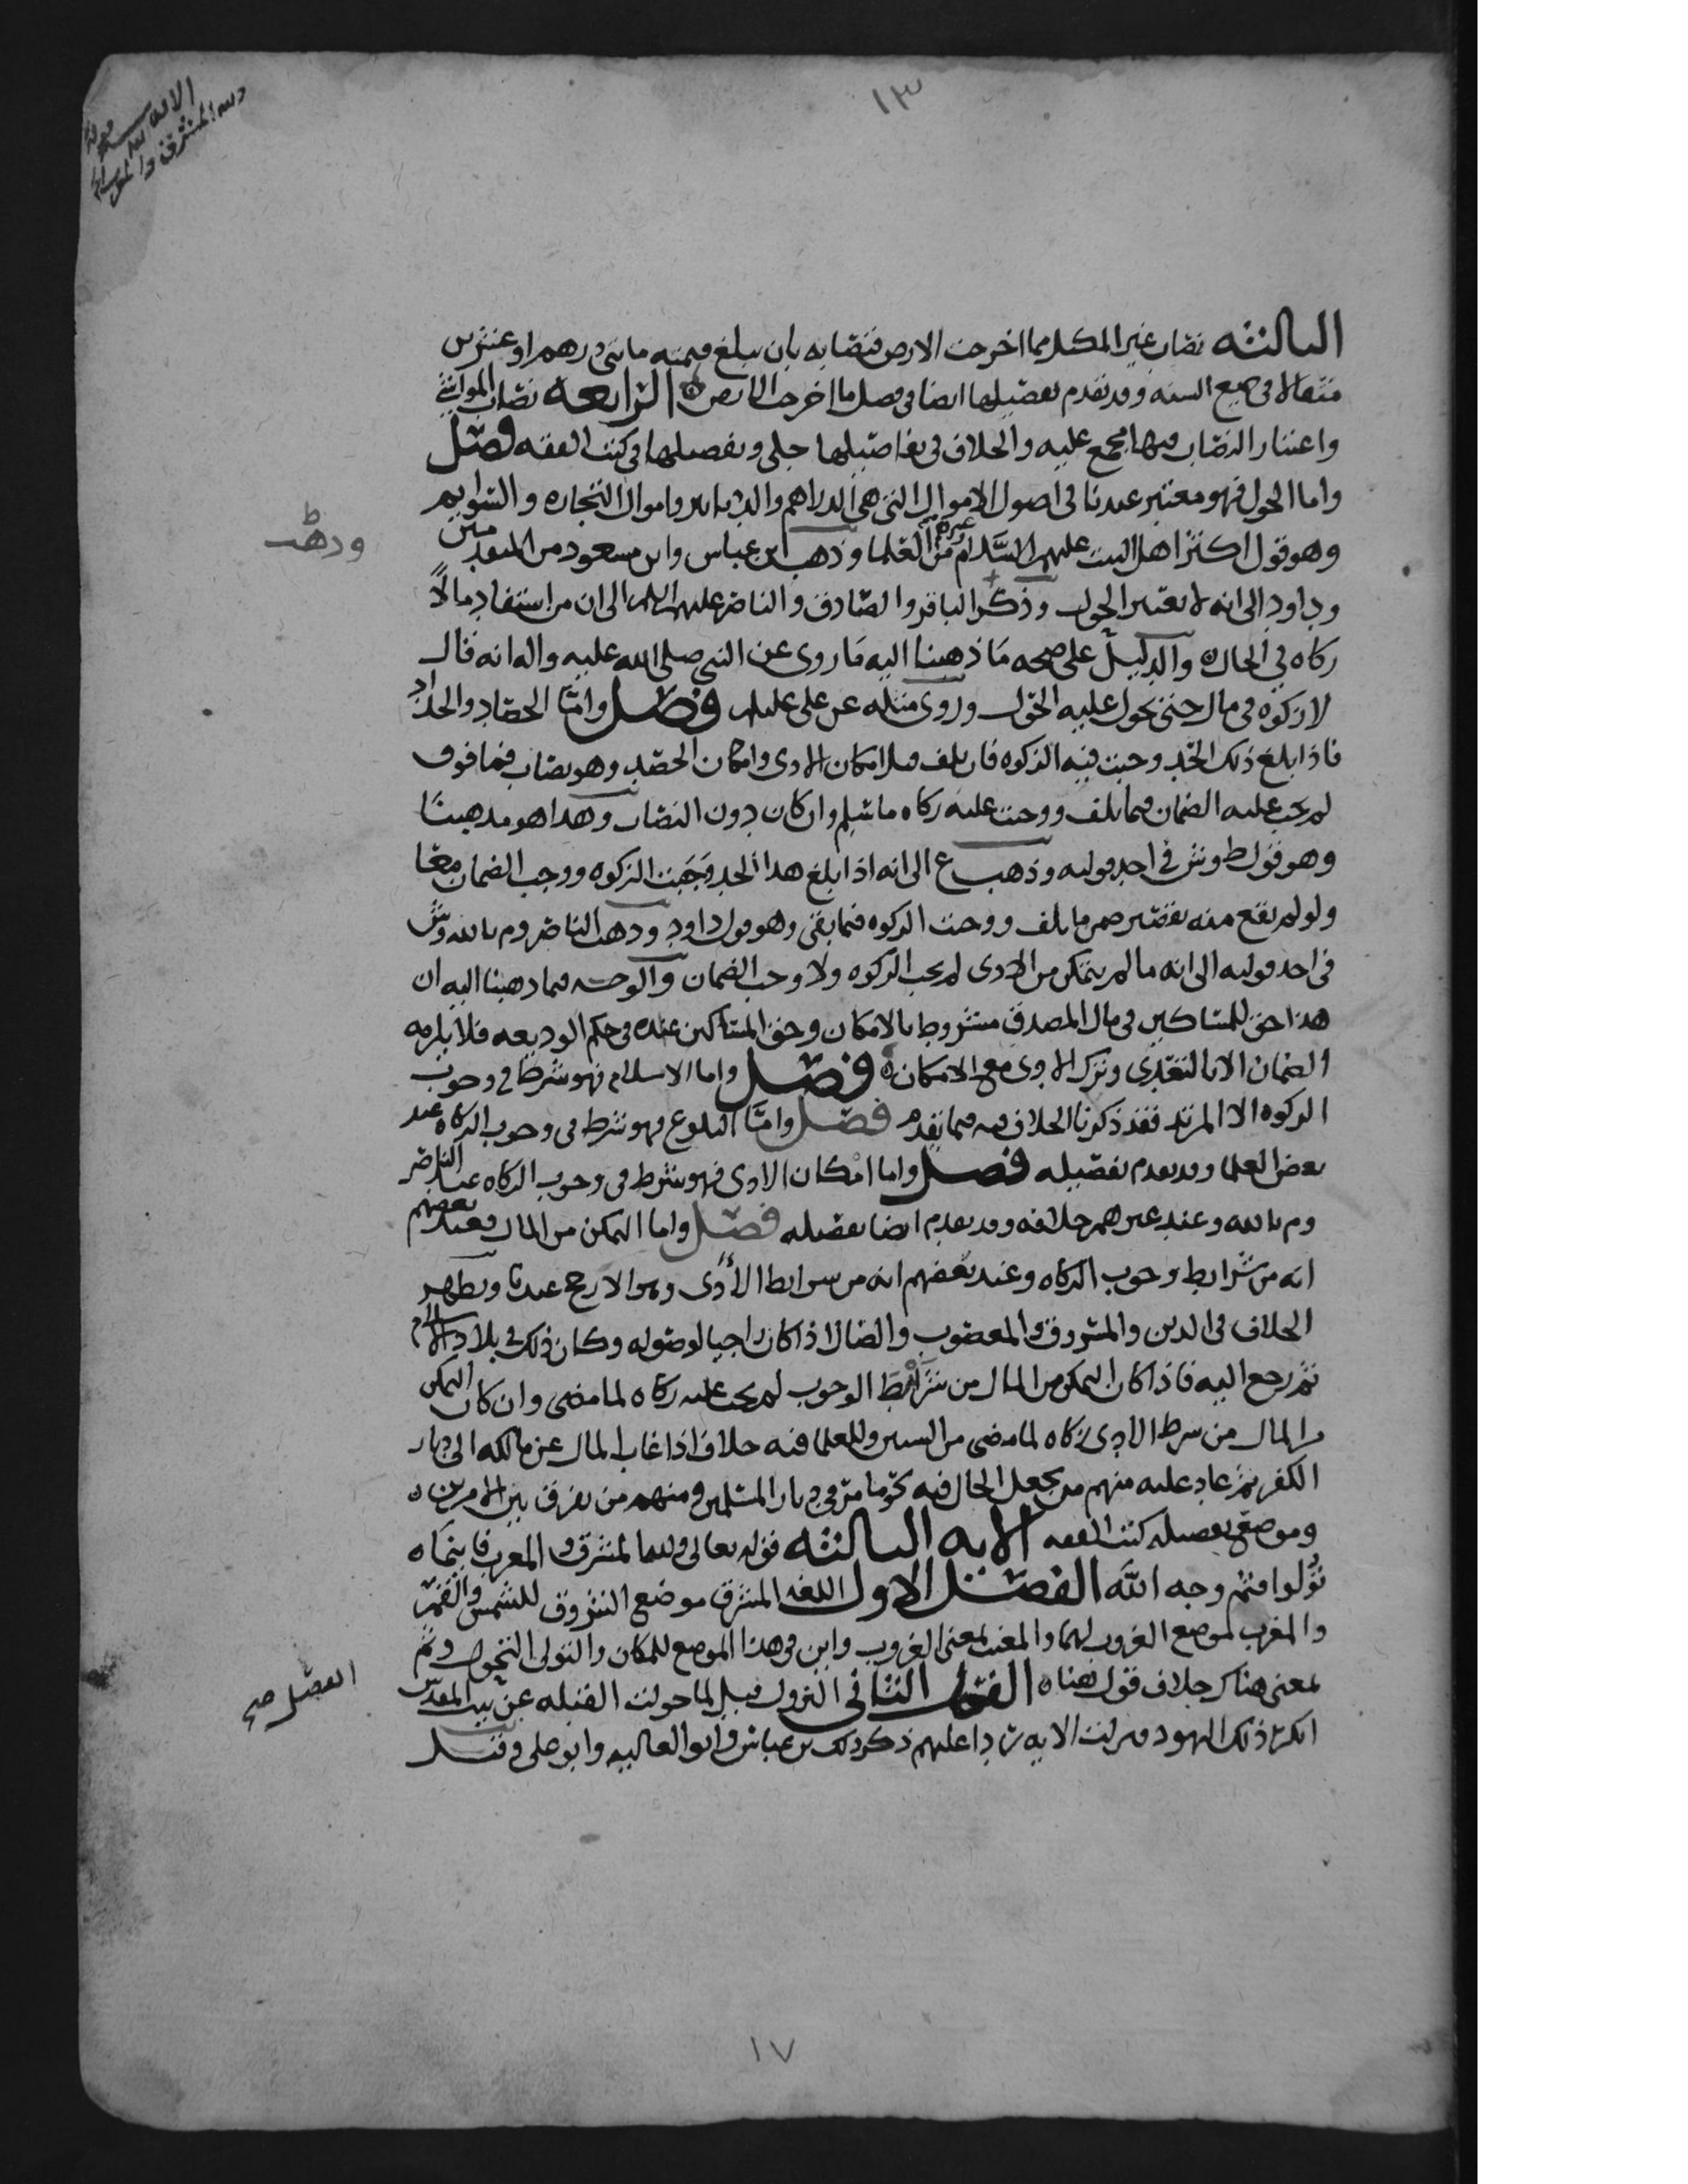 ١٣
الثالثه نصاب غير المكيل مما اخرجت الارض فنصابه بان يبلغ قيمته مائتي درهم او عشرين
مثقالا في جميع السنه وقد تقدم تفصيلها ايضا في فصل ما اخرجت الارض الرابعه نصاب المواشي
واعتبار النصاب فيها مجمع عليه والخلاف في تفاصيلها جلي وتفصيلها في كتب الفقه فصل
واما الحول فهو معتبر عندنا في اصول الاموال التي هي الدراهم والدنانير واموال التجاره والسوايم
وهو قول اكثر اهل البيت عليهم السلام وغيرهم من العلما وذهب ابن عباس وابن مسعود من المتقدمين
وداود الى انه لا يعتبر الحول وذكر الباقر والصادق والناصر عليهم السلم الى ان من استفاد مالًا
زكاه في الحال والدليل على صحه ما ذهبنا اليه ما روى عن النبي صلى الله عليه واله انه قال
لا زكوه في مال حتى يحول عليه الحول وروى مثله عن علي عليلم فصل وامّا الحصاد والجداد
فاذا بلغ ذلك الحد وجبت فيه الزكوه فان تلف قبل امكان الادى وامكان الحصد وهو نصاب فما فوق
لم يجب عليه الضمان فيما تلف ووجبت عليه زكاه ما سلم وان كان دون النصاب وهذا هو مذهبنا
وهو قول ط وش في احد قوليه وذهب ع الى انه اذا بلغ هذا الحد وجبت الزكوه ووجب الضمان معا
ولو لم يقع منه تقصير ضمن ما تلف ووجبت الزكوه فيما بقى وهو قول داود وذهب الناصر وم بالله وش
في احد قوليه الى انه ما لم يتمكن من الادى لم يجب الزكوه ولا وجب الضمان والوجه فيما ذهبنا اليه ان
هذا حق للمساكين في مال المصدق مشروط بالامكان وحق المساكين عنده في حكم الوديعه فلا يلزمه
الضمان الا بالتعدى وترك الادى مع الامكان فصل واما الاسلام فهو شرط في وجوب
الزكوه الا المرتد فقد ذكرنا الخلاف فيه فيما تقدم فصل وامّا البلوغ فهو شرط في وجوب الزكاه عند
بعض العلما وقد تقدم تفصيله فصل واما امكان الادى فهو شرط في وجوب الزكاه عند الناصر
وم بالله وعند غيرهم خلافه وقد تقدم ايضا تفصيله فصل واما التمكن من المال فعند بعضهم
انه من شرايط وجوب الزكاه وعند بعضهم انه من شرايط الأدى وهو الارجح عندنا ويظهر
الخلاف في الدين والمسروق والمغصوب والضال اذا كان راجيا لوصوله وكان ذلك في بلاد الاسلام
ثم رجع اليه فاذا كان التمكن من المال من شرايط الوجوب لم يجب عليه زكاه لما مضى وان كان التمكن
من المال من شرط الادى زكاه لما مضى من السنين وللعلما فيه خلاف اذا غاب المال عن مالكه الى ديار
الكفر ثم عاد عليه منهم من يجعل الحال فيه نحو ما مر في ديار المسلمين ومنهم من يفرق بين الامرين
وموضع تفصيله كتب الفقه الايه الثالثه قوله تعالى ولله المشرق والمغرب فاينما
تُوّلوا فثم وجه اللّه الفصل الاول اللغه المشرق موضع الشروق للشمس والقمر
والمغرب لموضع الغروب لهما والمغيب لمعنى الغروب واين في هذا الموضع للمكان والتولى التحول وثم
لمعنى هناك خلاف قول هنا الفصل الثاني النزول قيل لما حولت القبله عن بيت المقدس
انكر ذلك اليهود فنزلت الايه ردا عليهم ذكر ذلك بن عباس وابو العاليه وابو علي وقيل
وذهب
الفصل صح
١٧